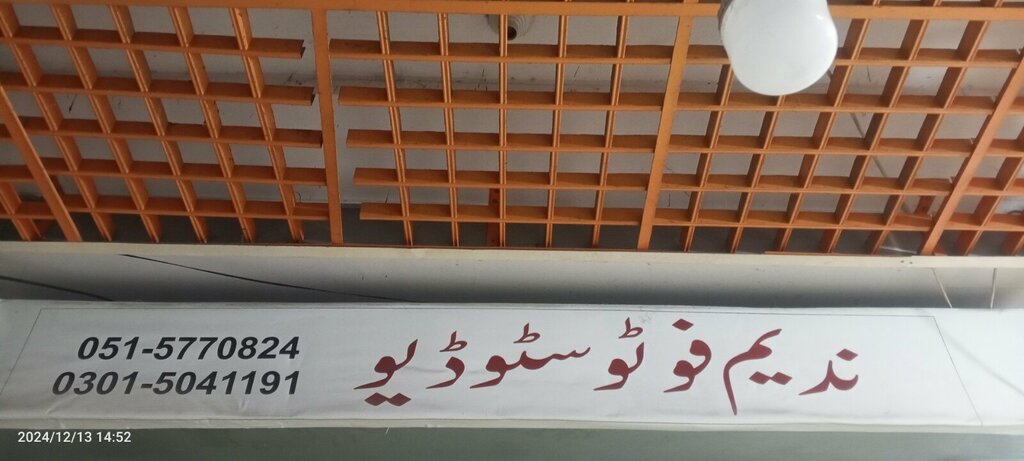 ندیم فوٹو سٹوڈیو
051-5770824
0301-5041191
2024/12/13 14:52